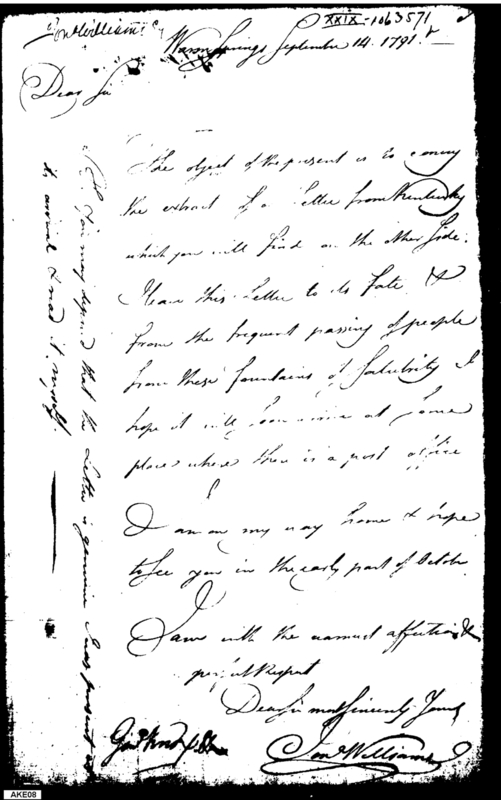 Jon Williams
XXIX-1063571
Warm Springs September 14. 1791.
Dear Sir
The object of the present is to convey
the extract of a Letter from Kentucky
which you will find on the other side.
I leave this Letter to its Fate &
from the frequent passing of people
from these Fountains of Salubrity I
hope it will soon arrive at some
place where there is a post office
I am on my way home & hope
to see you in the early part of October
I am with the warmest affection &
perfect Respect
Dear Sir most Sincerely Yours
Genl Knox
Jona Williams
NB. You may depend that the Letter is genuine I was present at
its arrival & read it myself.
AKE08